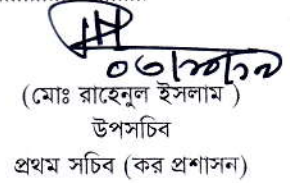 (মোঃ রাহেনুল ইসলাম )
উপসচিব
প্রথম সচিব (কর প্রশাসন)